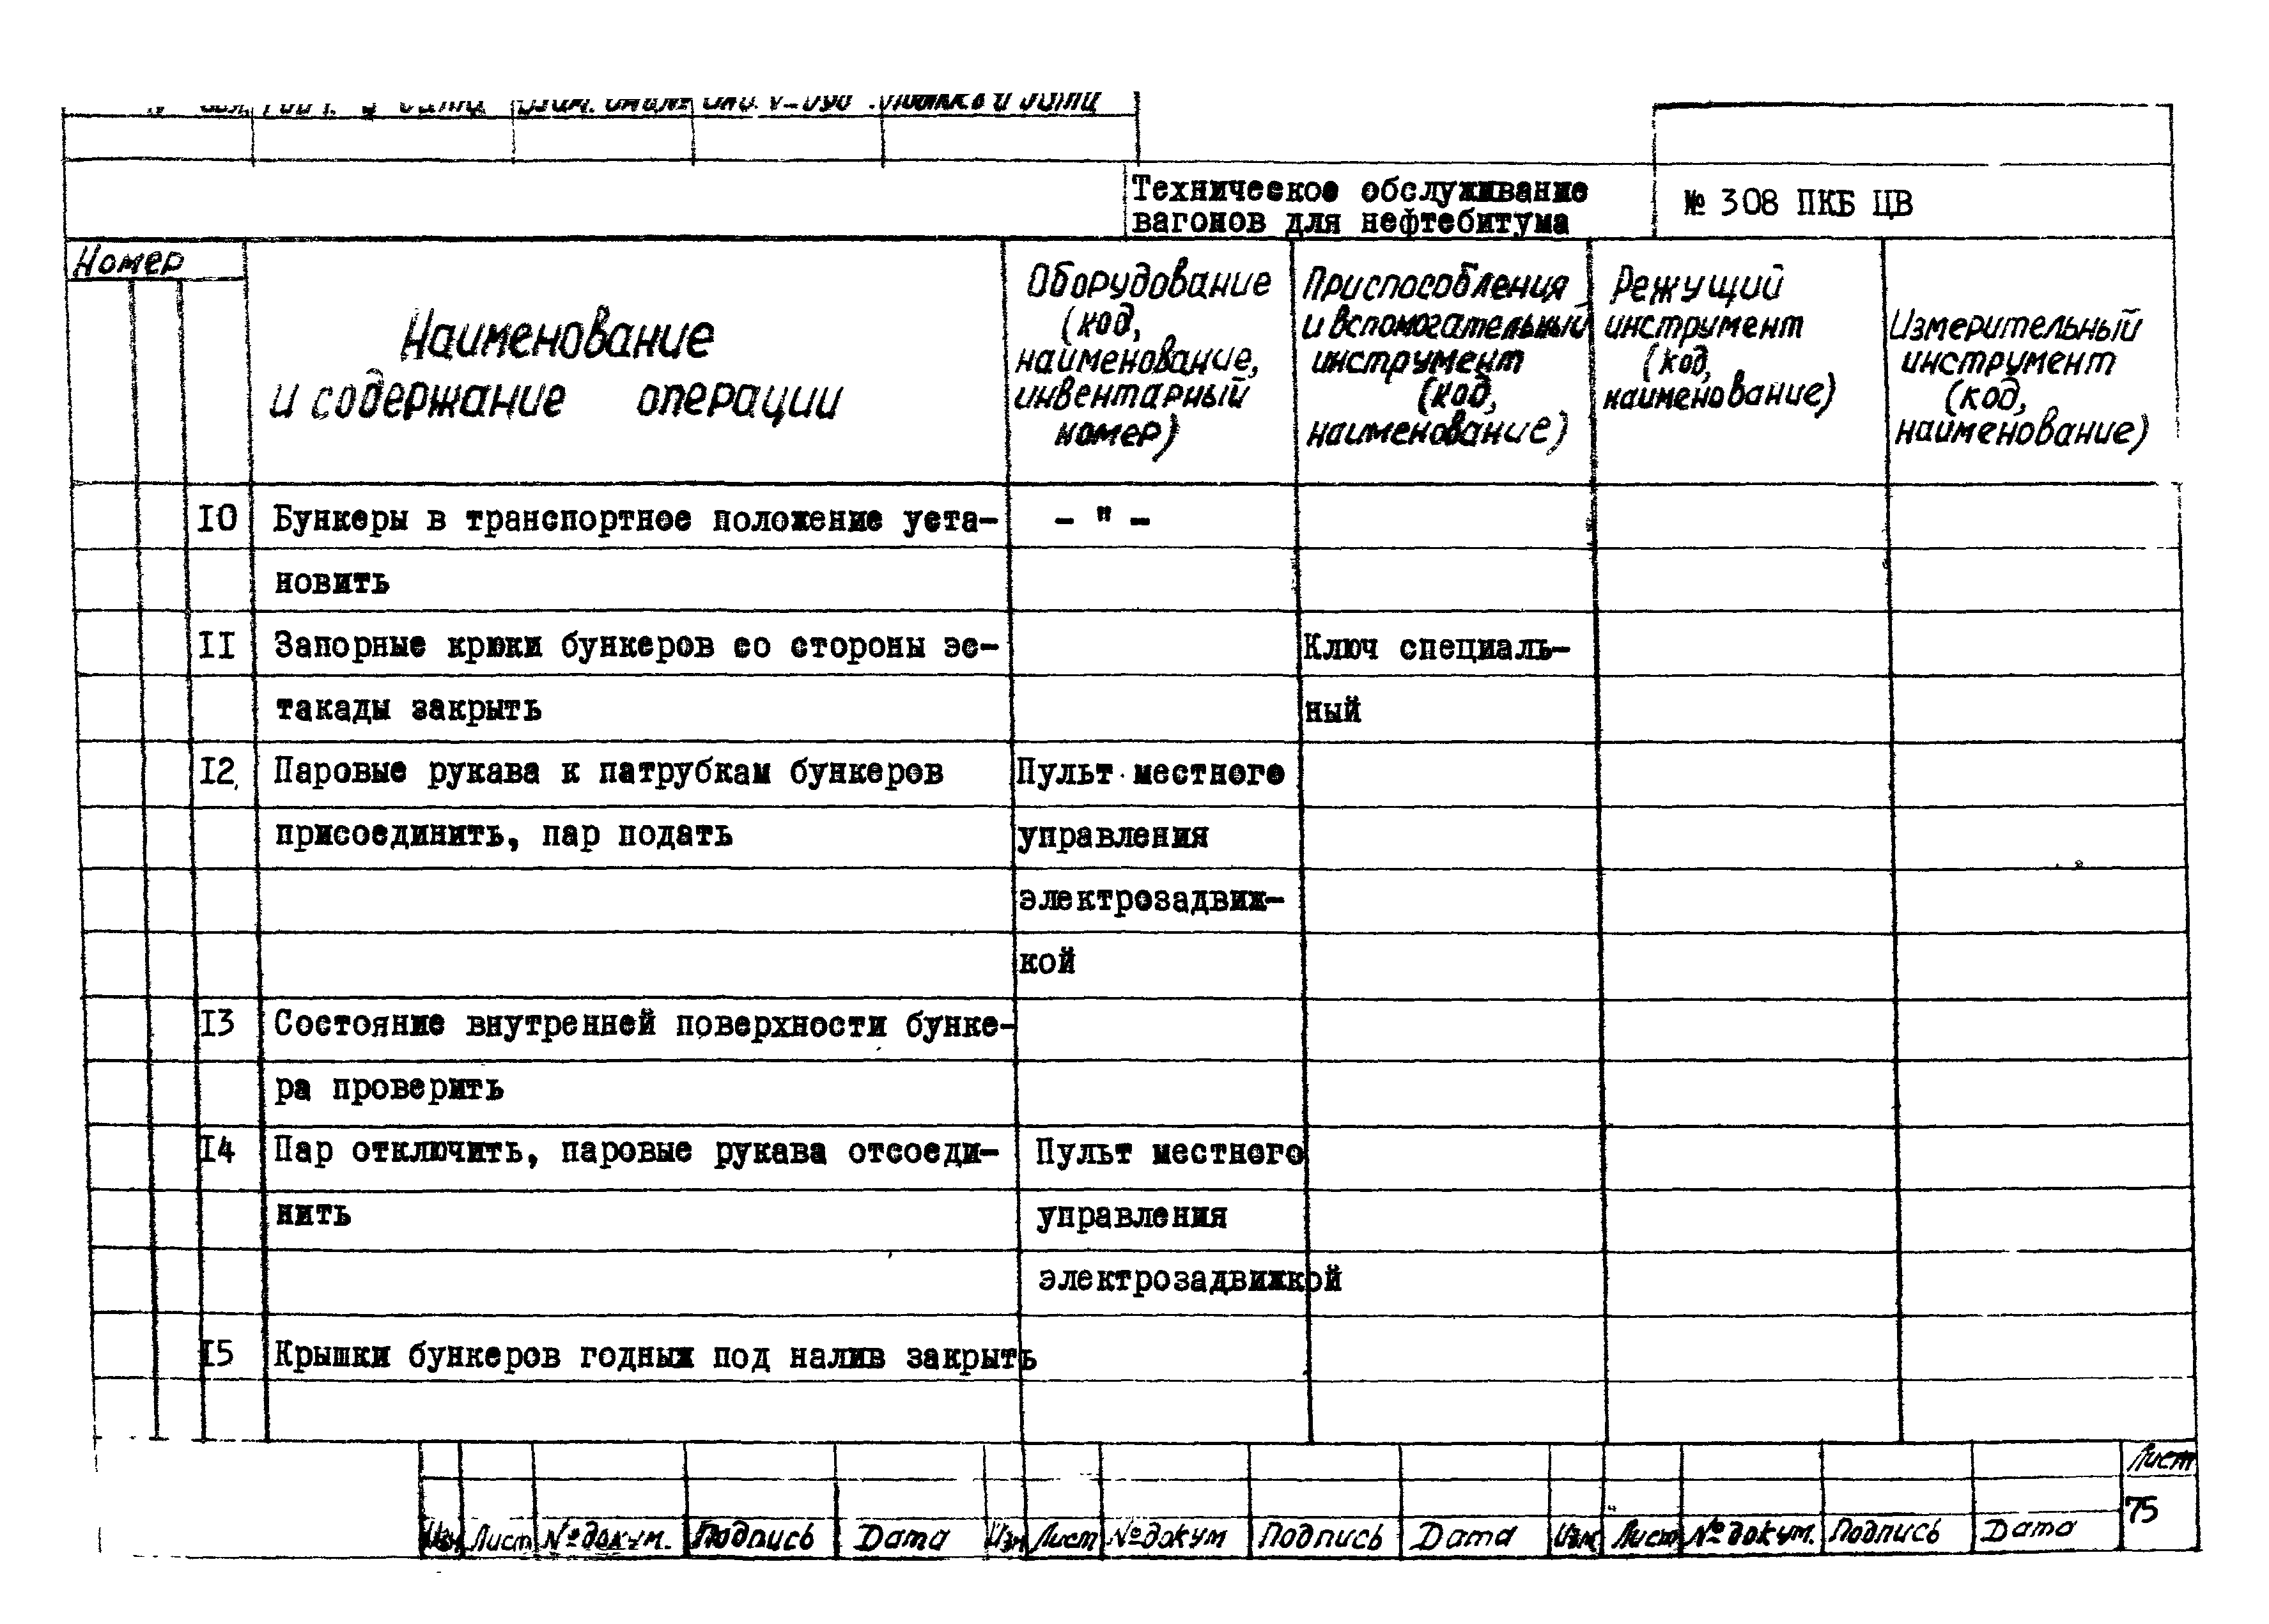 Техническое обслуживание
вагонов для нефтебитума
№ 308 ПКБ ЦВ
Номер
Наименование
и содержание операции
Оборудование
(код,
наименование,
инвентарный
номер)
Приспособления
и вспомогательный
инструмент
(код,
наименование)
Режущий
инструмент
(код,
наименование)
Измерительный
инструмент
(код,
наименование)
10 Бункеры в транспортное положение уста- - " -
новить
11 Запорные крюки бункеров со стороны эс- Ключ специаль-
такады закрыть ный
12 Паровые рукава к патрубкам бункеров Пульт местного
присоединить, пар подать управления
электрозадвиж-
кой
13 Состояние внутренней поверхности бунке-
ра проверить
14 Пар отключить, паровые рукава отсоеди- Пульт местного
нить управления
электрозадвижкой
15 Крышки бункеров годных под налив закрыть
Лист
75
Изм Лист № докум. Подпись Дата Изм Лист № докум Подпись Дата Изм Лист № докум. Подпись Дата